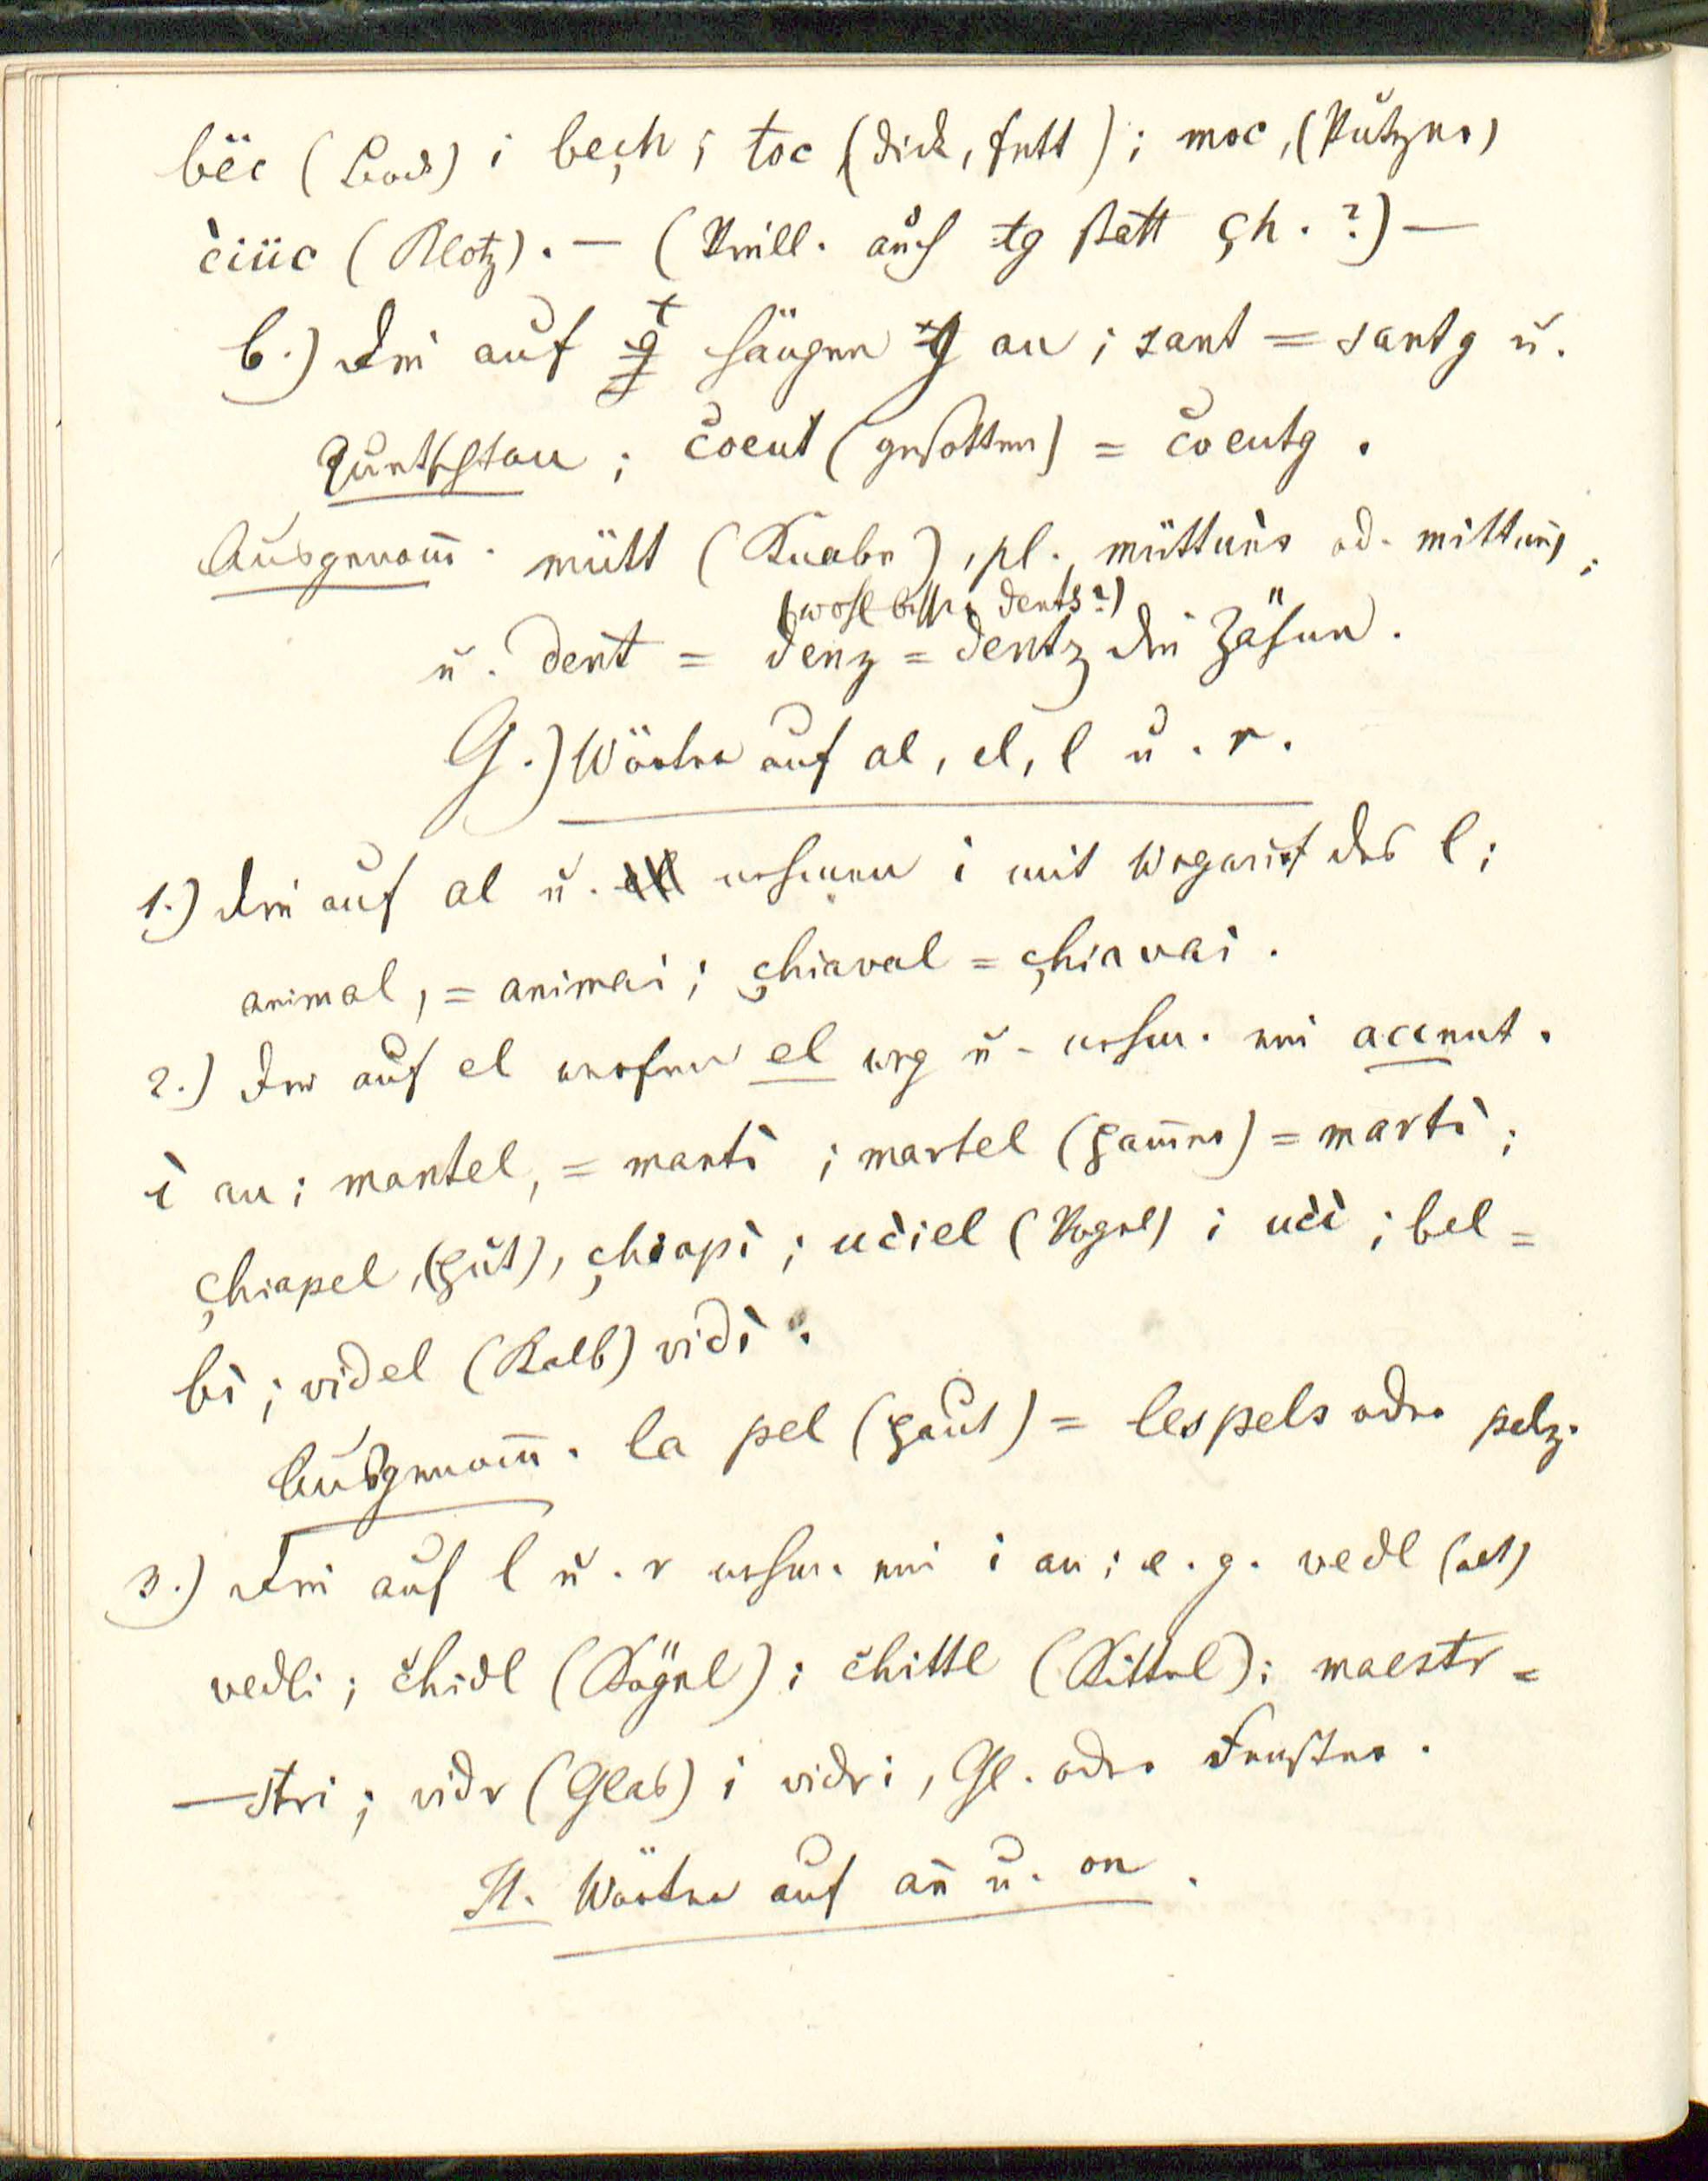 bëc (Bock) i beçh ; toc (dick, fett) ; moc, (Butzer)
ċiüc (Klotz). — (Vill. auch tg statt çh. ?) —
b.) Die auf t hängen g an ; sant = santg u.
Quntschtau ; c̆oeut (gesotten) = c̆oeutg .
Ausgenom̄. mütt (Knabe), pl. müttuns od. mittuns ;
(wohl besser dents ?)
u. dent = denz = dentz die Zähne.
G.) Wörter auf al, el, l u. r.
1.) Die auf al u. nehmen i mit Wegwurf des l ;
animal, = animai ; çhiaval = çhiavai .
2.) Die auf el werfen el weg u. nehm. ein accent.
ì an ; mantel, = mantì ; martel (Ham̄er) = martì ;
çhiapel, (Hut), çhiapì ; uċiel (Vogel) i uċì ; bel =
bì ; videl (Kalb) vidì .
Ausgenom̄. la pel (Haut) = les pels oder pelz.
3.) Die auf l u. r nehm. ein i an ; e. g. vedl (alt)
vedli ; c̆hidl (Kögel) ; c̆hittl (Kittel) ; maestr =
—stri ; vidr (Glas) i vidri, Gl. oder Fenster .
H. Wörter auf an̄ u. on .